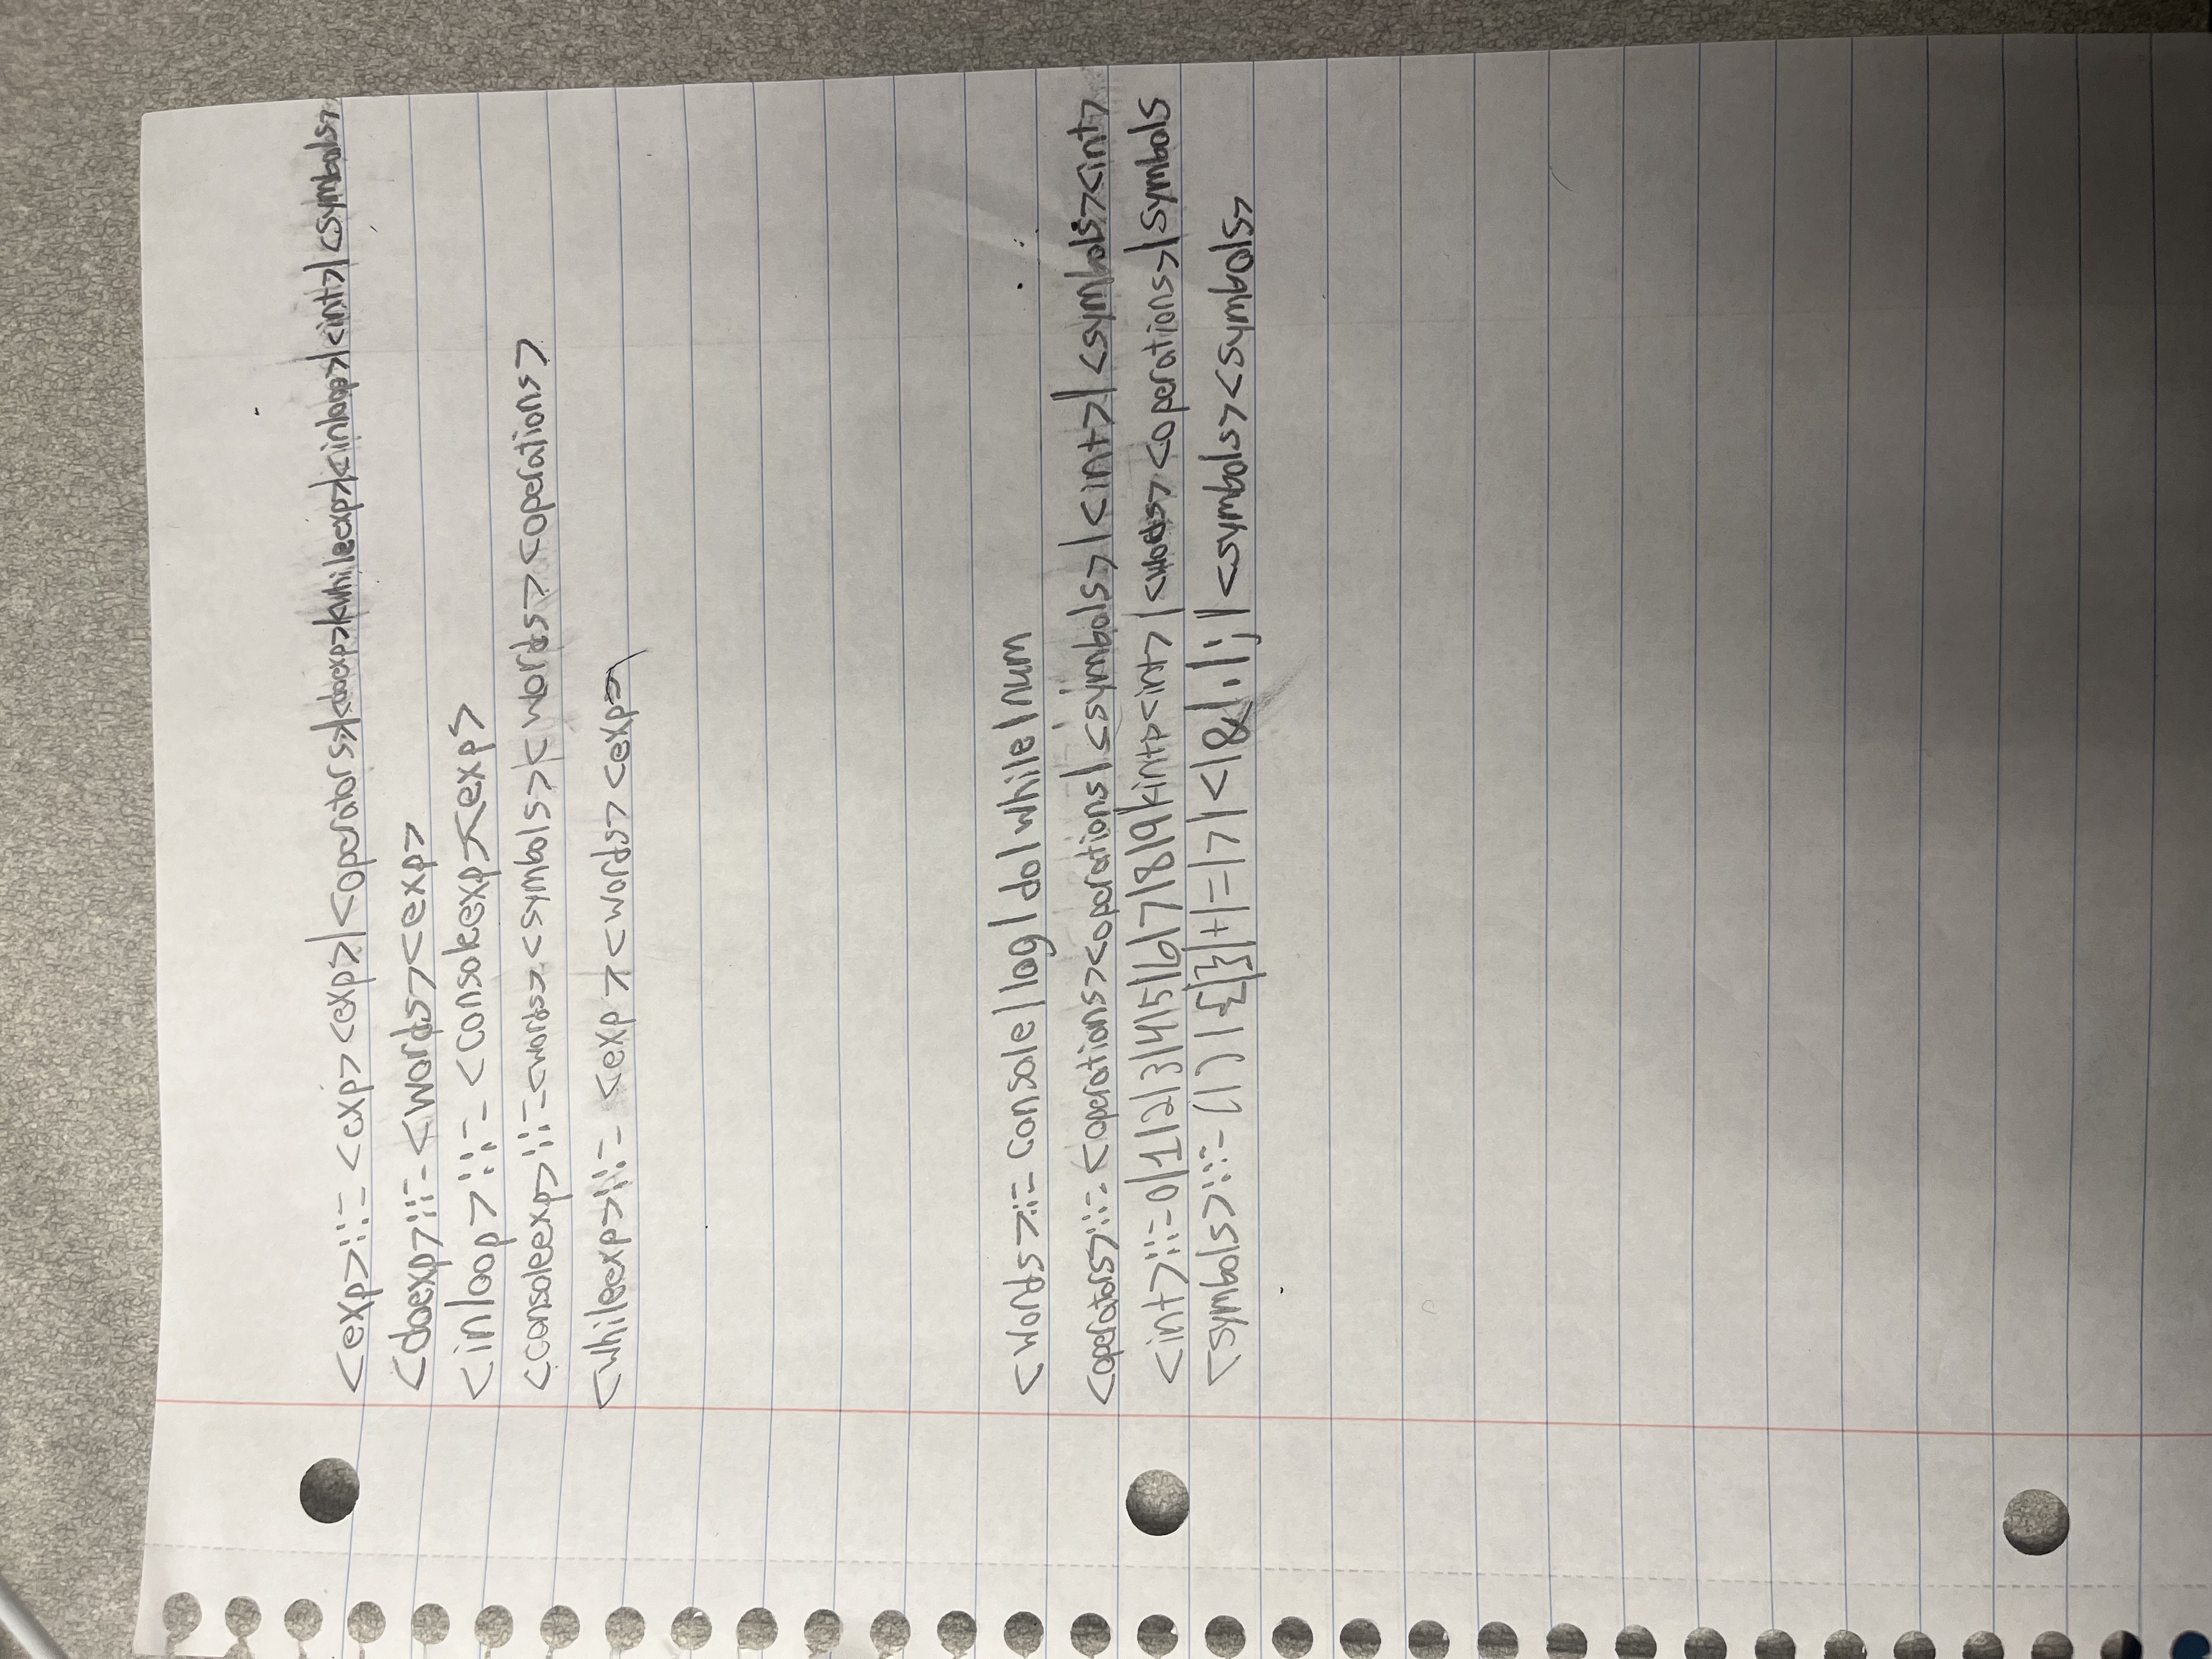 <exp>::= <exp><exp>|<operators>|<doexp>|<whileexp>|<inloop>|<int>|<symbols>
<doexp>::= <words><exp>
<inloop>::= <consoleexp><exp>
<consoleexp>::=<words><symbols><words><operations>
<whileexp>::= <exp><words><exp>
<words>::= console|log|do|while|num
<operators>::= <operations><operations|<symbols>|<int>|<symbols><int>
<int>::=0|1|2|3|4|5|6|7|8|9|<int><int>|<words><operations>|symbols
<symbols>::=(|)|{|}|+|=|>|<|&|.|;|<symbols><symbols>